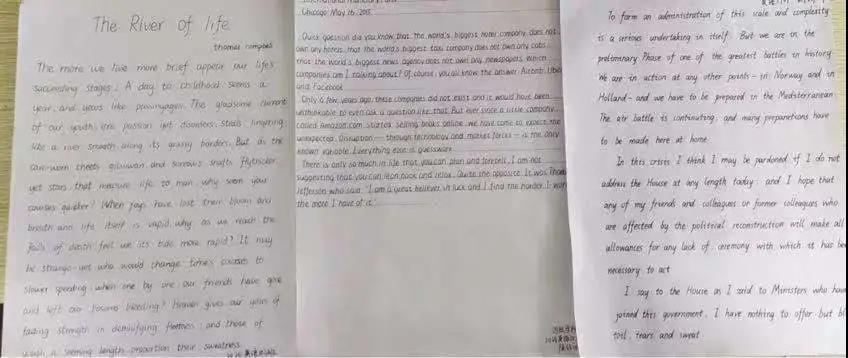 The River of life
thomas campbell
The more we live more brief appear our life's
succeeding stages: A day to childhood seems a
year, and years like passingages. The gladsome current
of our youth, ere passion yet disorders, steals lingering
like a river smooth along its grassy borders. But as the
care-worn cheeks grow wan and sorrow's shafts fly thicker
yet stars that measure life to man why seem your
courses quicker? When joys have lost their bloom and
breath and life itself is vapid why as we reach the
Falls of death feel we its tide more rapid? It may
be strange-yet who would change time's courses to
slower speeding when one by one our friends have gone
and left our bosoms bleeding? Heaven gives our years of
fading strength in demnifying fleetness; and those of
youth a seeming length proportion their sweetness
Chicago, May 16, 2015
Quick question did you know that the world's biggest hotel company does not
own any hotels, that the world's biggest taxi company does not own any cabs
that the world's biggest news agency does not own any newspapers. Which
companies am I talking about? Of course, you all know the answer: Airbnb Uber
and Facebook
Only a few years ago, these companies did not exist and it would have been
unthinkable to even ask a question like that. But ever since a little company
called Amazon.com started selling books online we have come to expect the
unexpected. Disruption — through technology and market forces — is the only
known variable. Everything else is guesswork
There is only so much in life that you can plan and foretell. I am not
suggesting that you can lean back and relax. Quite the opposite. It was Thomas
Jefferson who said: "I am a great believer in luck and I find the harder I work
the more I have of it."
To form an administration of this scale and complexity
is a serious undertaking in itself. But we are in the
preliminary Phase of one of the greatest battles in history
We are in action at any other points - in Norway and in
Holland - and we have to be prepared in the Mediterranean.
The air battle is continuing, and many preparations have
to be made here at home
In this crisis I think I may be pardoned if I do not
address the House at any length today, and I hope that
any of my friends and colleagues or former colleagues who
are affected by the political reconstruction will make all
allowances for any lack of ceremony with which it has be
necessary to act
I say to the House as I said to Ministers who have
joined this government, I have nothing to offer but bl
toil, tears and sweat